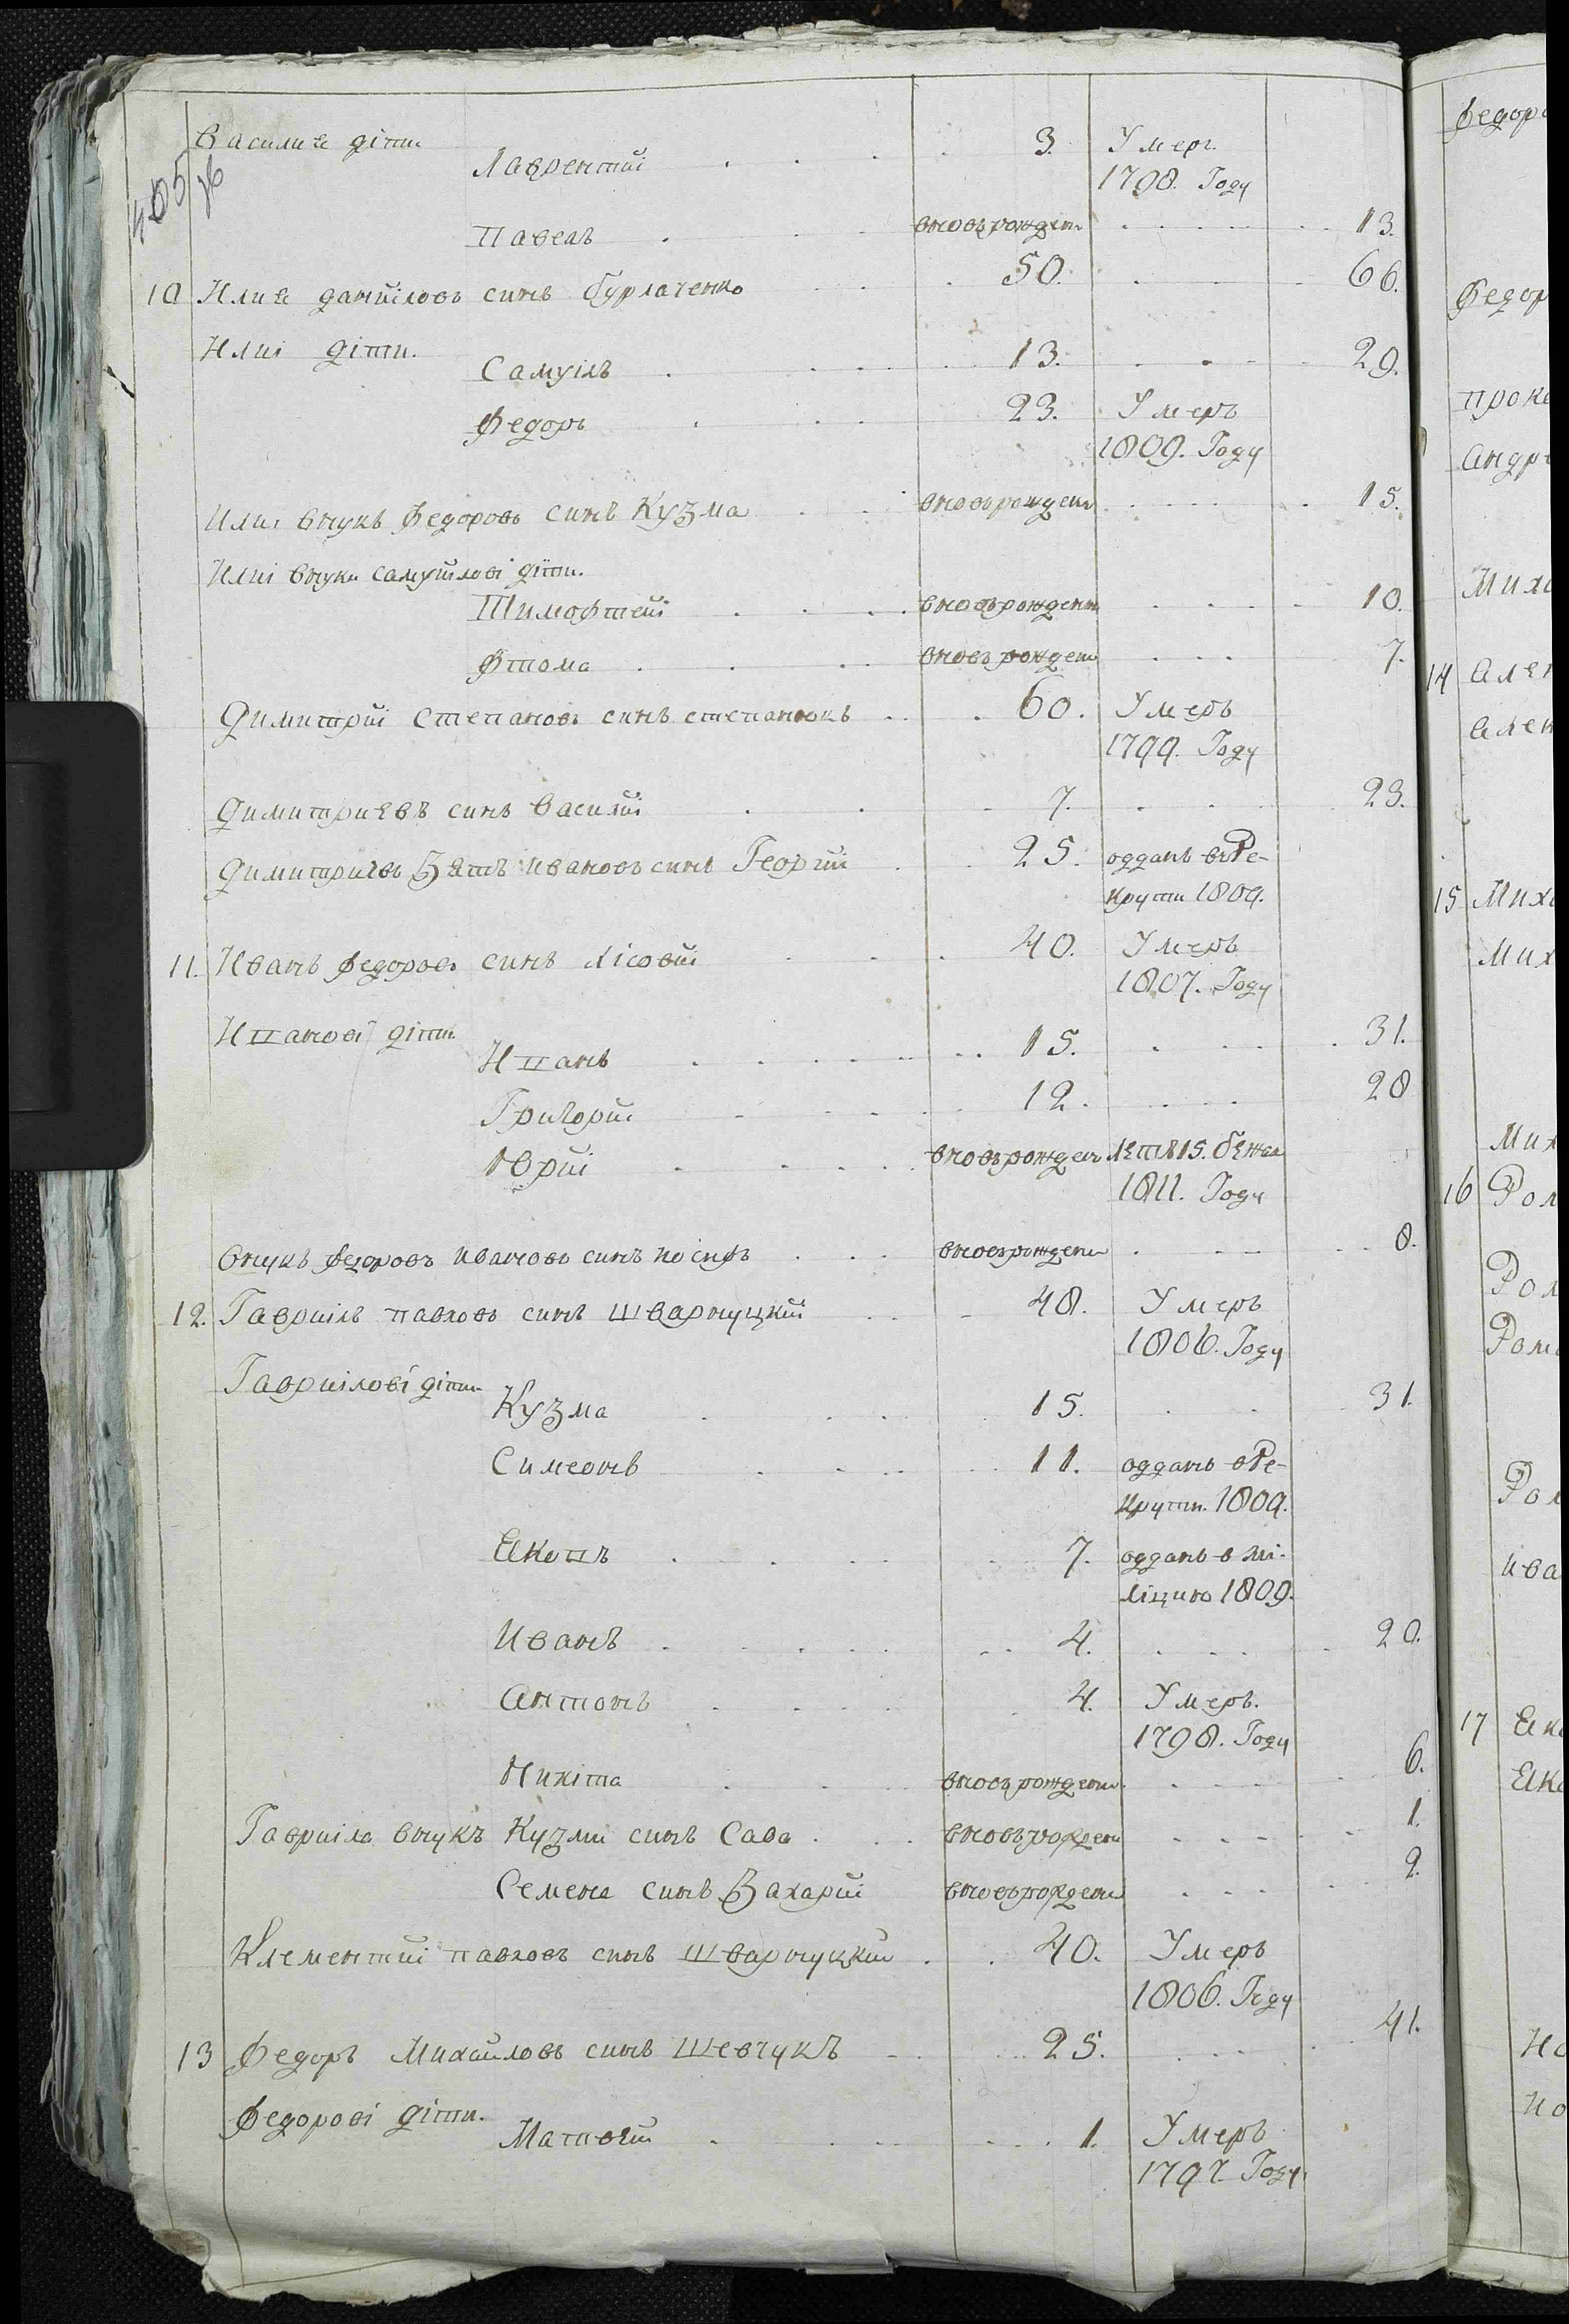 405
Василия діти
Лаврентій 3. Умерг.
1798. Году
Павелъ вновьрожден. 13.
10 Илия данііловъ синъ бурлаченко 50. 66.
Илиі діти.
Самуілъ 13. 29.
Федоръ 23. Умеръ
1809. Году
Илиі внукъ Федоровъ синъ Кузма вновьрожден 15.
Илиі внуки самуйлові діти.
Тимофтей вновьрожденн 10.
Фтома вновьрожден 7.
Димитрій Степановъ синъ степанюкъ 60. Умеръ
1799. Году
Димитриевъ синъ Василій 7. 23.
Димитриевъ Зять ивановъ синъ Георгій 25. одданъ въ Ре-
крути 1809.
11. Иванъ Федоровъ синъ лісовій 40. Умеръ
1807. Году
Иванові діти
Иванъ 15. 31.
Григорій 12. 28
Юрій вновьрожден летъ 15. бежал
1811. Году
внукъ Федоровъ ивановъ синъ иосифъ вновьрожден 8.
12. Гавриілъ павловъ синъ шварнуцкій 48. Умеръ
1806. Году
Гавриілові діти
Кузма 15. 31.
Симеонъ 11. одданъ в Ре-
крути. 1809.
Яковъ 7. одданъ в мі-
ліцию 1809.
Иванъ 4. 20.
антонъ 4. Умеръ.
1798. Году
Никіта вновьрожден 6.
Гавриіла внукъ Кузми синъ Сава вновьрожден 1.
Семена синъ Захарій вновьрожден 2.
Клементій павловъ синъ Шварнуцкій 40. Умеръ
1806. Году
13 Федоръ Михайловъ синъ Шевчукъ 25. 41.
Федорові діти.
Матвей 1. Умеръ
1797. Году
Федор
Федор
прок
андр
Мих
14 алек
алек
15 Мих
Мих
Мих
16 Ром
Ром
Ром
Ром
ива
17 Яко
Яко